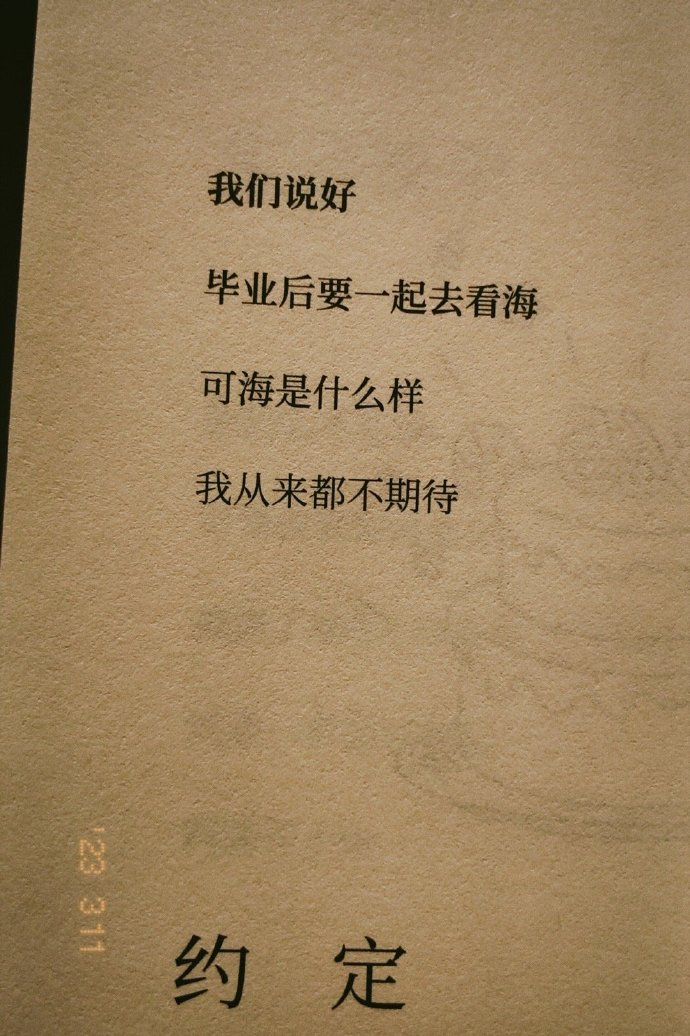 我们说好
毕业后要一起去看海
可海是什么样
我从来都不期待
'23 3 11
约定